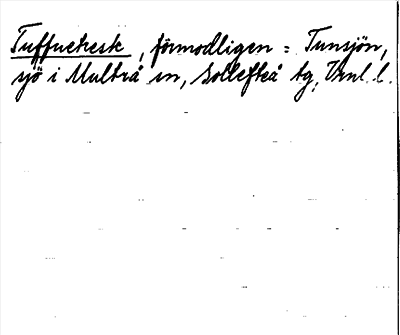 Tuffuetresk, förmodligen = Tunsjön,
sjö i Multrå sn, Sollefteå tg, Vrnl. l.